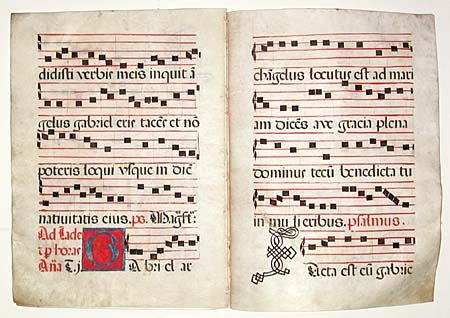 didisti verbis meis inquit ā
gelus gabriel eris tacēs et nō
poteris loqui usque in diē
nativitatis eius. ps. Magf̄.
Ad Laude
t p horas
Añā T. j. Gabriel ar
chāgelus locutus est ad mari
am dicēs ave gracia plena
dominus tecū benedicta tu
in mulieribus. psalmus.
Facta est cū gabrie